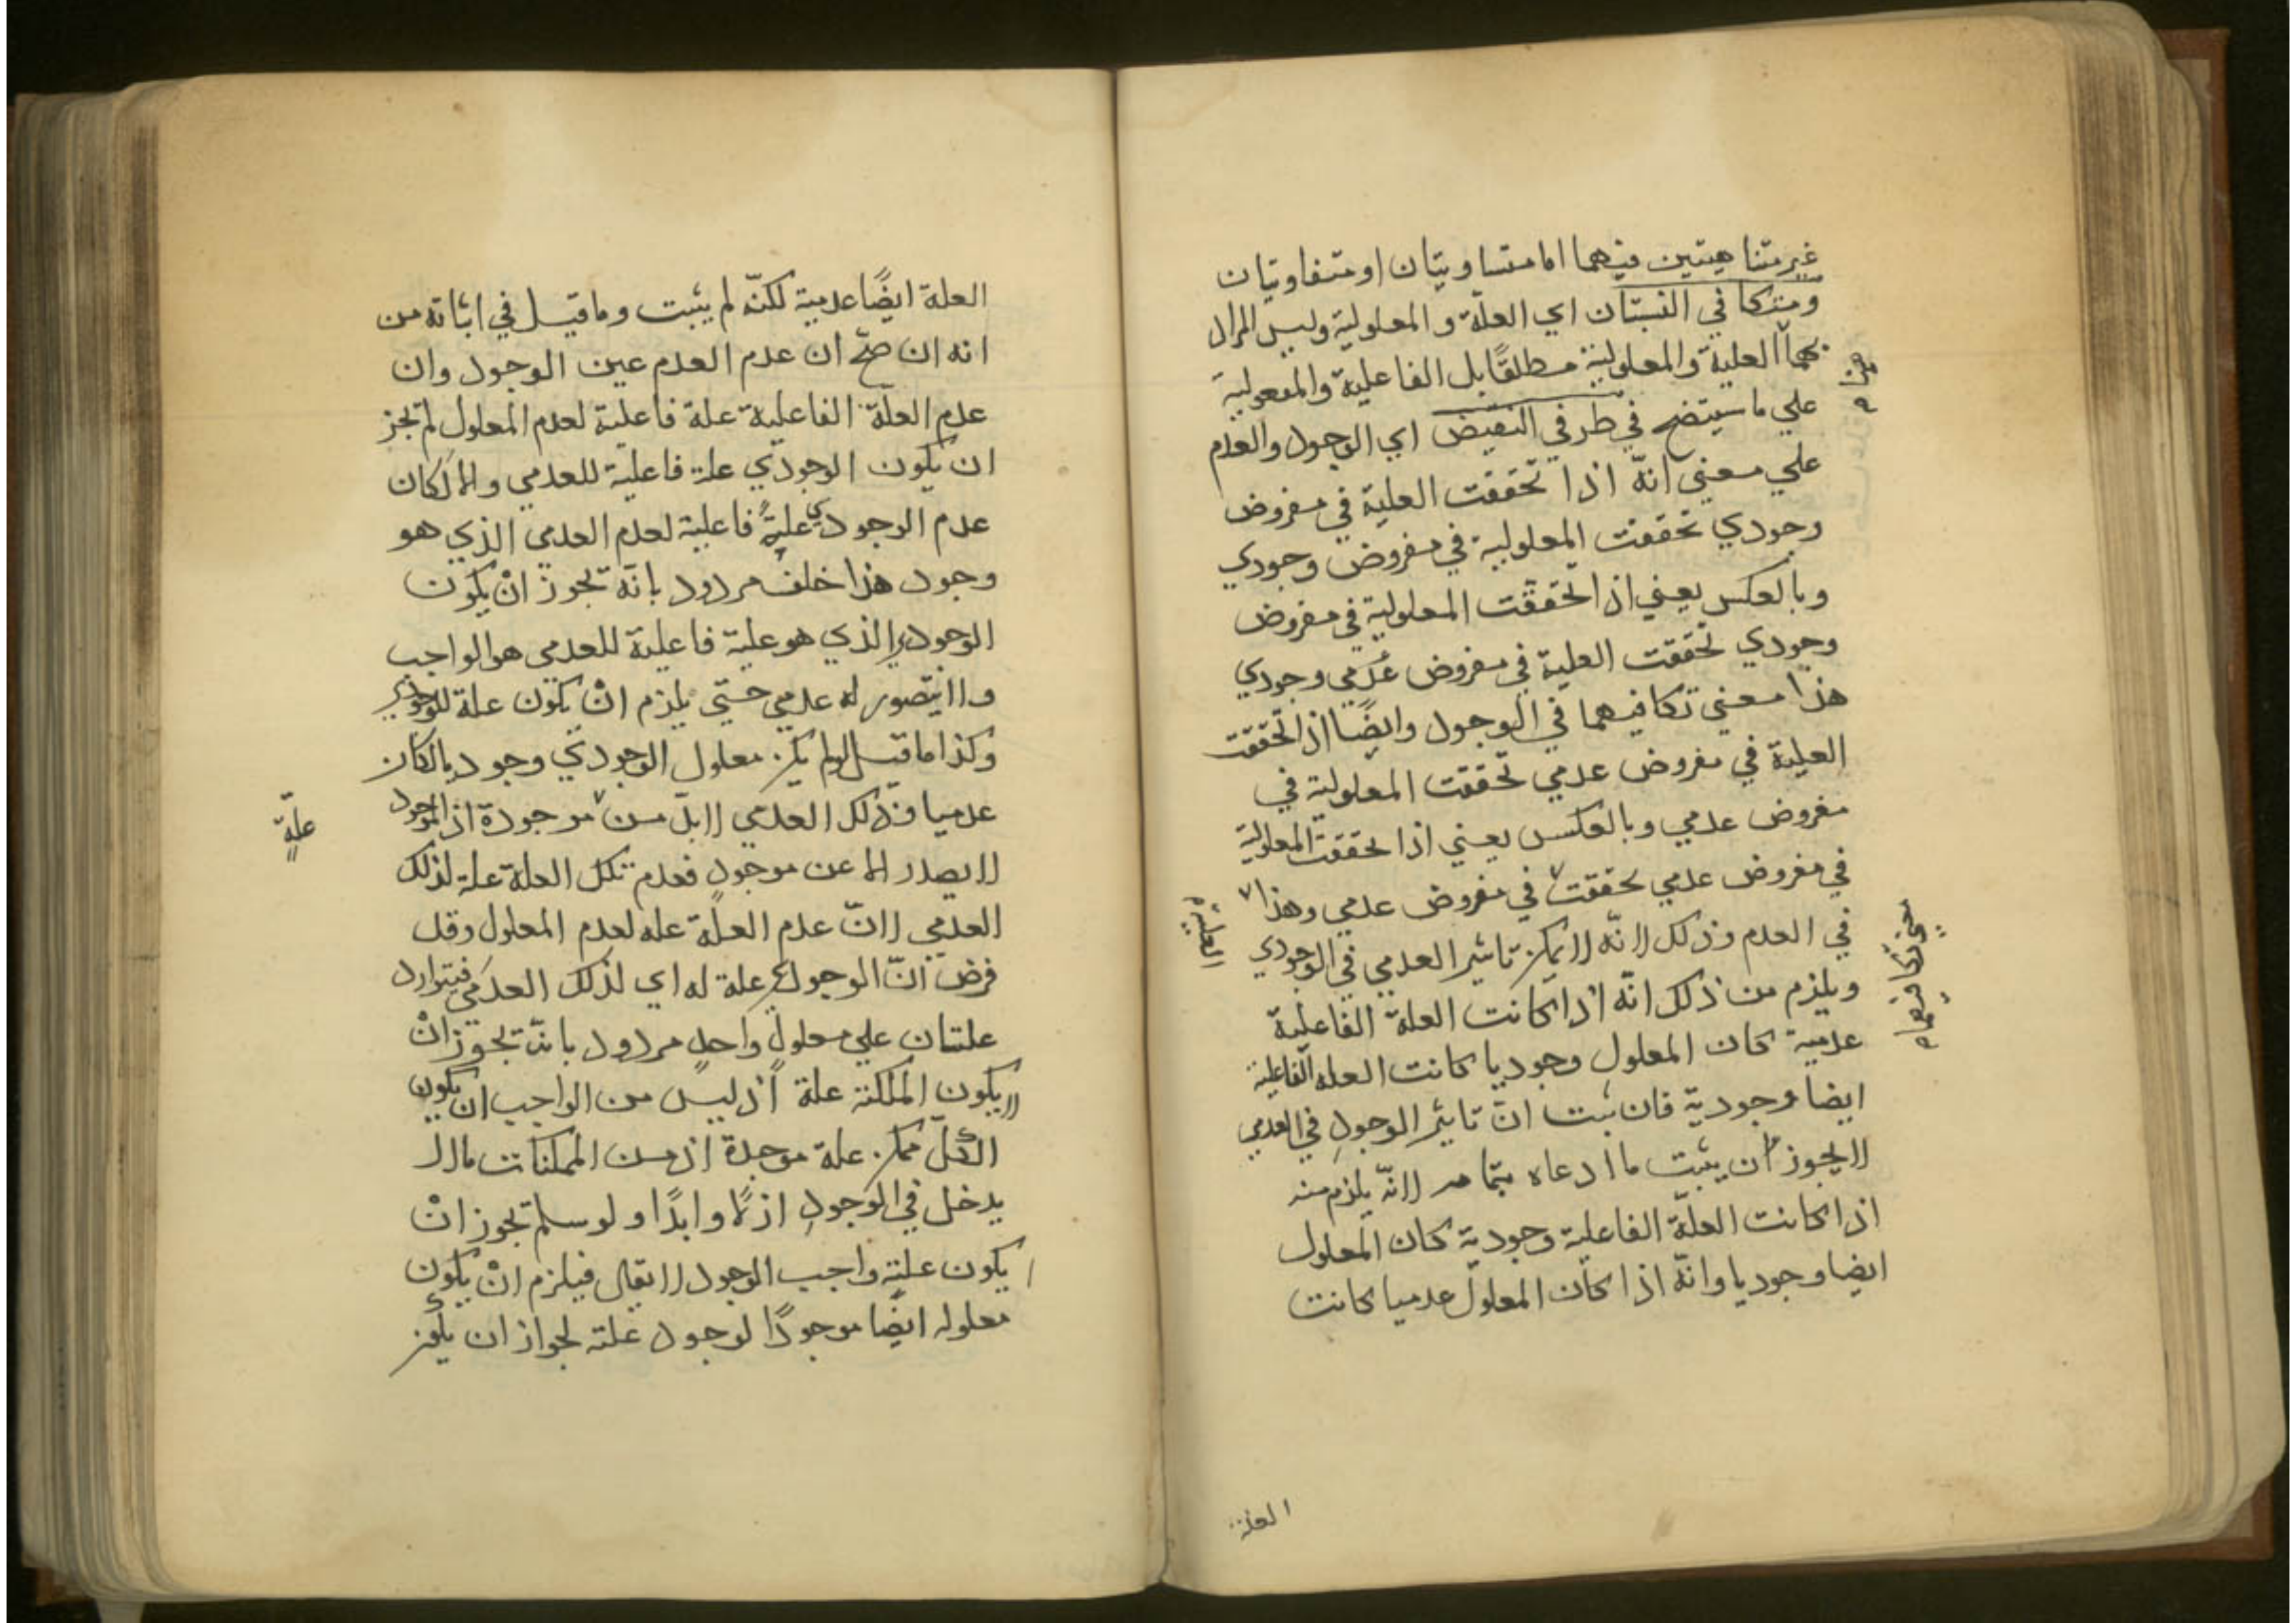 غير متناهيتين فيهما اما متساويتان او متفاوتيان
ومتكافي النسبتان اي العلّة والمعلولية وليس المراد
بهما العلية والمعلولية مطلقًا بل الفاعلية والمفعولية
علي ما سيتضح في طرفي النقيض اي الوجود والعدم
علي معني انّه اذا تحققت العلية في مفروض
وجودي تحققت المعلولية في مفروض وجودي
وبالعكس يعني اذا تحققت المعلولية في مفروض
وجودي تحققت العلية في مفروض عدمي وجودي
هذا معني تكافيهما في الوجود وايضًا اذا تحققت
العلية في مفروض عدمي تحققت المعلولية في
مفروض عدمي وبالعكس يعني اذا تحققت المعلولية
في مفروض عدمي تحققت في مفروض عدمي وهذا
العلية
معني تكافيهما
في العدم وذلك لانّه لا يمكن تاثير العدمي في الوجودي
ويلزم من ذلك انّه اذا كانت العلة الفاعلية
عدمية كان المعلول وجوديا كانت العلة الفاعلية
ايضا وجوديّة فان ثبت انّ تاثير الوجود في العدمي
لا يجوز ان يثبت ما ادعاه بتمامه لانّه يلزم منه
اذا كانت العلّة الفاعلية وجودية كان المعلول
ايضا وجوديا وانّه اذا كان المعلول عدميا كانت
العلة
العلة ايضًا عدمية لكنّه لم يثبت وما قيل في اثباته من
انه ان صحّ ان عدم العدم عين الوجود وان
عدم العلّة الفاعلية علة فاعلية لعدم المعلول لم تجز
ان يكون الوجودي علة فاعلية للعدمي والا لكان
عدم الوجودي علية فاعلية لعدم العدمي الذي هو
وجود هذا خلف مردود بانّه تجوز انْ يكون
الوجودي الذي هو علية فاعلية للعدمي هو الواجب
ولا يتصور له عدمي حتي يلزم انْ يكون علة للوجودي
وكذا ما قيل لو لم يكن معلول الوجودي وجوديا لكان
عدميا وذلك العدمي لا بدّ من موجودة اذ الموجود
علّةٍ
لا يصدر الا عن موجود فعدم تلك العلة علة لذلك
العدمي لانّ عدم العلّة علة لعدم المعلول وقد
فرض انّ الوجودي علة له اي لذلك العدمي فيتوارد
علتان علي معلول واحد مردود بانّه تجوز انْ
لا يكون الملكنة علة اذ ليس من الواجب ان يكون
لكلّ ممكن علة موجدة اذ من الممكنات ما لا
يدخل في الوجود ازلًا وابدًا ولو سلم تجوز انْ
يكون علته واجب الوجود لا يقال فيلزم انْ يكون
معلوله ايضًا موجودًا لوجود علته لجواز ان يكون